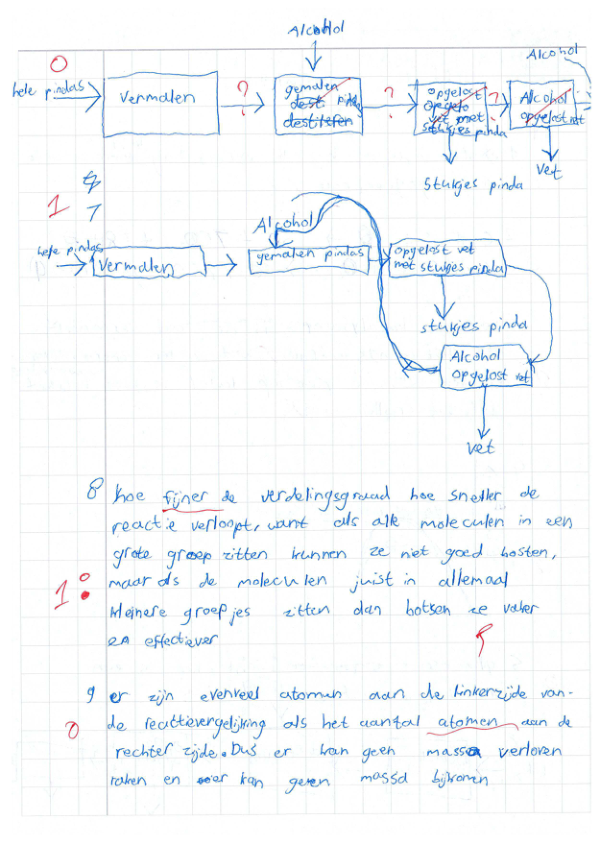 Alcohol
0
Alcohol
hele pindas
Vermalen
?
gemalen
dest pindas
destileren
?
opgelost
opgelo
vet met
stukjes pinda
?
Alcohol
opgelost vet
Stukjes pinda
vet
1
7
Alcohol
hele pindas
Vermalen
gemalen pindas
opgelost vet
met stukjes pinda
stukjes pinda
Alcohol
opgelost vet
vet
8 hoe fijner de verdelingsgraad hoe sneller de
reactie verloopt, want als alle moleculen in een
grote groep zitten kunnen ze niet goed bosten,
maar als de moleculen juist in allemaal
1
kleinere groepjes zitten dan botsen ze vaker
en effectiever
9 er zijn evenveel atomen aan de linkerzijde van
0
de reactievergelijking als het aantal atomen aan de
rechter zijde. Dus er kan geen massa verloren
raken en er kan geen massa bijkomen